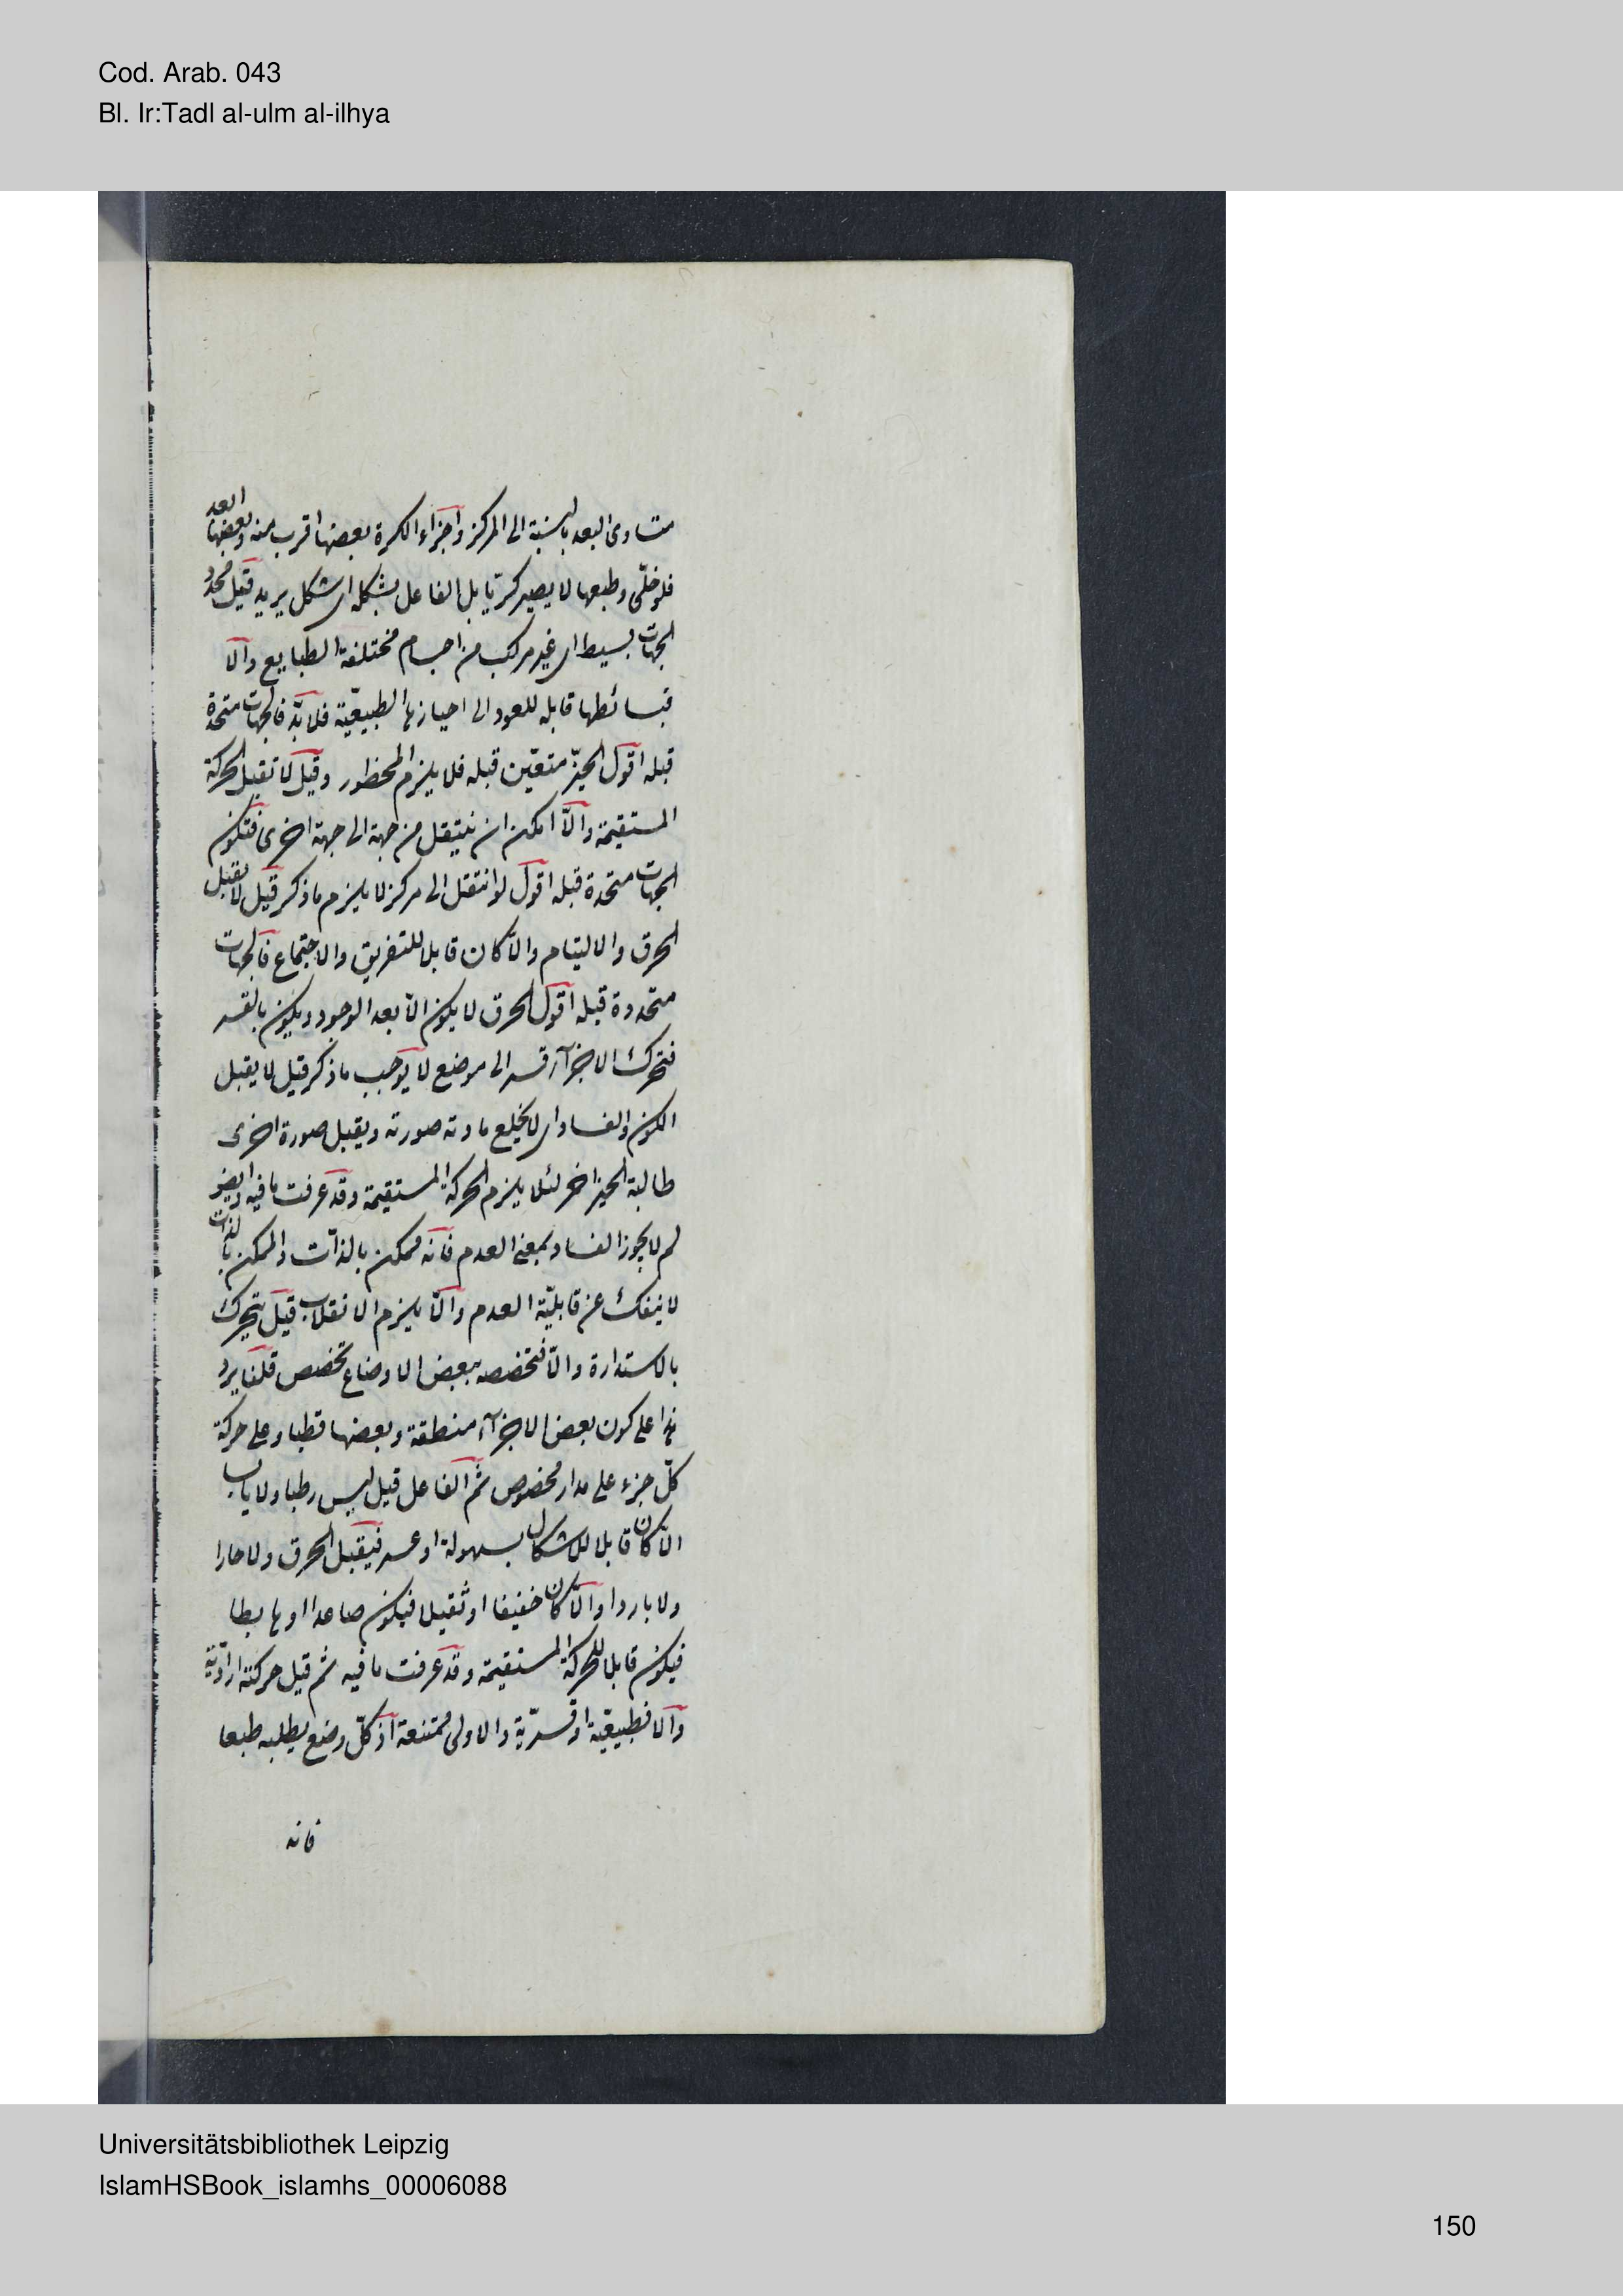 Cod. Arab. 043
Bl. Ir:Tadl al-ulm al-ilhya
متساوى البعد بالنسبة الى المركز واجزاء الكرة بعضها اقرب منه وبعضها ابعد
فلو خلّى وطبعها لا يصير كريّا بل الفاعل يشكله اى شكل يريد قيل محدد
الجهات بسيط اى غير مركب من اجسام مختلفة الطبايع والا
فبسائطها قابلة للعود الى احيازها الطبيعيّة فلابدّ فالجهات متحددة
قبله اقول الحيّز متعيّن قبله فلا يلزم المحظور وقيل لا تقبل الحركة
المستقيمة والّا امكن ان ينتقل من جهة الى جهة اخرى فتكون
الجهات متحددة قبله اقول لو انتقل الى مركز لا يلزم ما ذكر قيل لا يقبل
الخرق والالتيام والّا كان قابلا للتفريق والاجتماع فالجهات
متحددة قبله اقول الخرق لا يكون الّا بعد الوجود ويكون بالقسر
فتحرك الاجزآء قسرا الى موضع لا يوجب ما ذكر قيل لا يقبل
الكون والفساد اى لا يخلع مادته صورته ويقبل صورة اخرى
طالبة لحيز اخر لئلا يلزم الحركة المستقيمة وقد عرفت ما فيه وايضا
لم لا يجوز الفساد بمعنى العدم فانه ممكن بالذات والممكن بالذات
لا ينفك عن قابليّة العدم والّا يلزم الانقلاب قيل يتحرك
بالاستدارة والّا فتخصصه ببعض الاوضاع تخصص قلنا يرد
هذا على كون بعض الاجزآء منطقة وبعضها قطبا وعلى حركة
كلّ جزء على مدار مخصوص ثم الفاعل قيل ليس رطبا ولا يابسا
والّا كان قابلا للاشكال بسهولة او عسر فيقبل الخرق ولا حارا
ولا باردا والّا كان خفيفا او ثقيلا فيكون صاعدا او هابطا
فيكون قابلا للحركة المستقيمة وقد عرفت ما فيه ثم قيل حركته اراديّة
والا فطبيعيّة او قسريّة والاولى ممتنعة اذ كلّ وضع يطلبه طبعا
فانه
Universitätsbibliothek Leipzig
IslamHSBook_islamhs_00006088
150